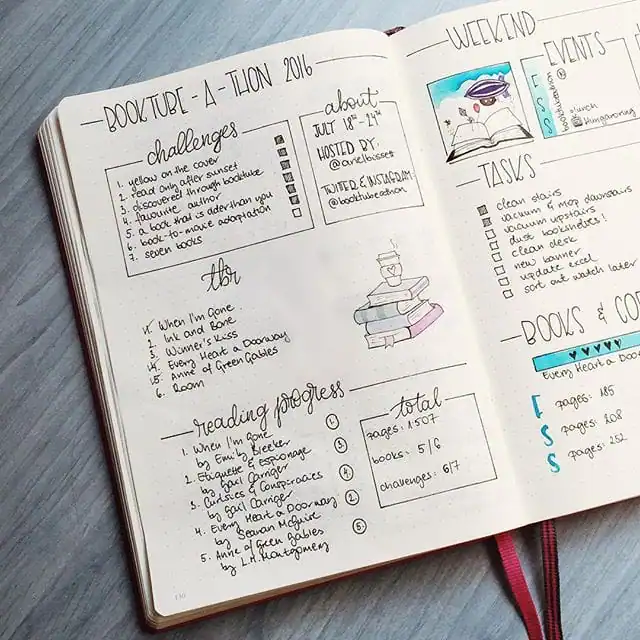 BOOKTUBE-A-THON 2016
challenges
1. yellow on the cover
2. read only after sunset
3. discovered through booktube
4. favourite author
5. a book that is older than you
6. book-to-movie adaptation
7. seven books
about
JULY 18TH-24TH
HOSTED BY:
@arielbissett
TWITTER & INSTAGRAM:
@booktubeathon
tbr
1. When I'm Gone
2. Ink and Bone
3. Winner's Kiss
4. Every Heart a Doorway
5. Anne of Green Gables
6. Room
reading progress
1. When I'm Gone
by Emily Bleeker
2. Etiquette & Espionage
by Gail Carriger
3. Curtsies & Conspiracies
by Gail Carriger
4. Every Heart a Doorway
by Seanan McGuire
5. Anne of Green Gables
by L.M. Montgomery
1.
3.
4.
2.
5.
total
pages: 1507
books: 5/6
challenges: 6/7
110
WEEKEND
EVENTS
F
S
S
booktubeathon
lunch
Hungaroring
TASKS
clean stairs
vacuum & mop downstairs
vacuum upstairs
dust bookshelves!
clean desk
new banner
update excel
sort out watch later
BOOKS & CO
Every Heart a Doo
F pages: 185
S pages: 208
S pages: 252